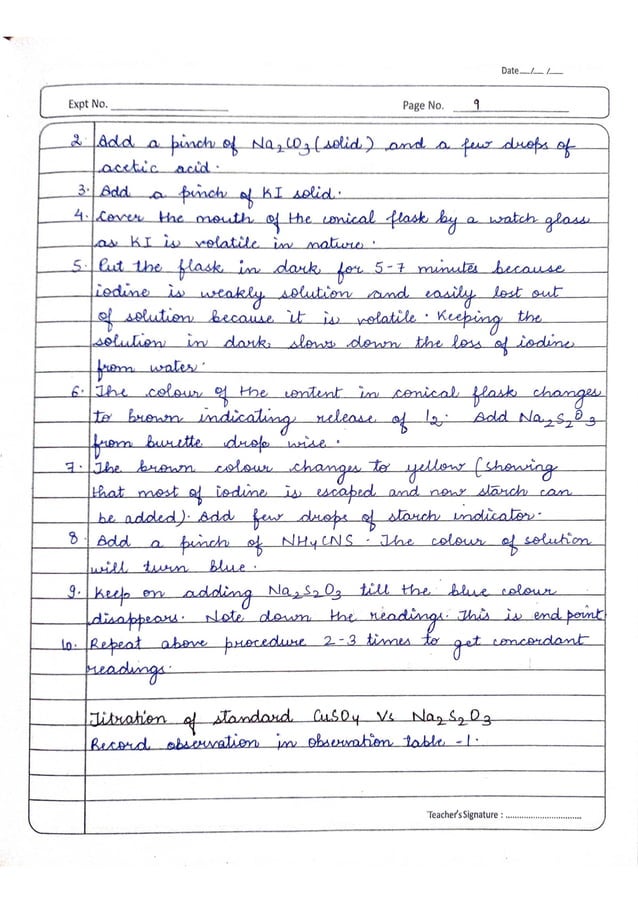 Date__/__ /__
Expt No. ____ Page No. 9
2. Add a pinch of Na2CO3 (solid) and a few drops of
acetic acid.
3. Add a pinch of KI solid.
4. Cover the mouth of the conical flask by a watch glass
as KI is volatile in nature.
5. Put the flask in dark for 5-7 minutes because
iodine is weakly solution and easily lost out
of solution because it is volatile. Keeping the
solution in dark, slows down the loss of iodine
from water.
6. The colour of the content in conical flask changes
to brown indicating release of I2. Add Na2S2O3
from burette drop wise.
7. The brown colour changes to yellow (showing
that most of iodine is escaped and now starch can
be added). Add few drops of starch indicator.
8. Add a pinch of NH4CNS. The colour of solution
will turn blue.
9. Keep on adding Na2S2O3 till the blue colour
disappears. Note down the readings. This is end point
10. Repeat above procedure 2-3 times to get concordant
readings.
Titration of standard CuSO4 Vs Na2S2O3
Record observation in observation table -1.
Teacher's Signature : ................................